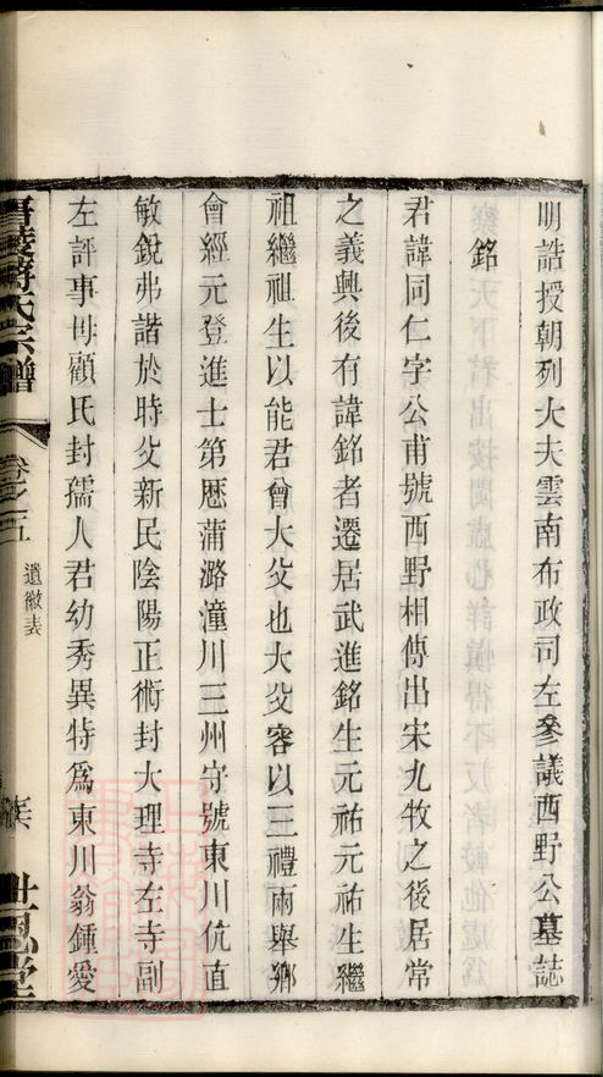 明誥授朝列大夫雲南布政司左參議西野公墓誌
銘
君諱同仁字公甫號西野相傳出宋九牧之後居常
之義興後有諱銘者遷居武進銘生元祐元祐生繼
祖繼祖生以能君曾大父也大父容以三禮兩舉鄉
會經元登進士第歷蒲潞潼川三州守號東川伉直
敏銳弗諧於時父新民陰陽正術封大理寺左寺副
左評事母顧氏封孺人君幼秀異特爲東川翁鍾愛
蔣氏宗譜
卷之五
遺徽表
世恩堂